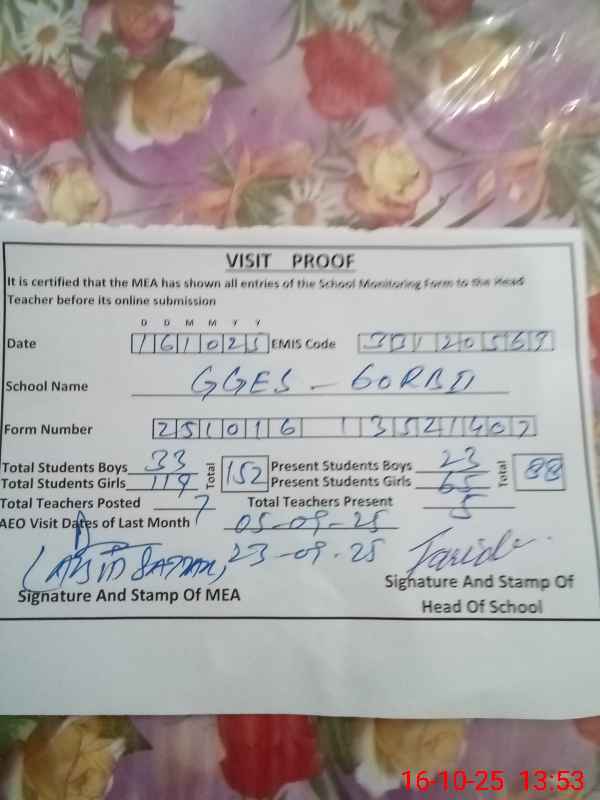 VISIT PROOF
It is certified that the MEA has shown all entries of the School Monitoring Form to the Head
Teacher before its online submission
D D M M Y Y
Date 161025 EMIS Code 33120569
School Name GGES - GORBII
Form Number 251016 13521407
Total Students Boys 33 Total 152 Present Students Boys 23 Total 88
Total Students Girls 119 Present Students Girls 65
Total Teachers Posted 7 Total Teachers Present 5
AEO Visit Dates of Last Month 05-09-25
23-09-25 Farida
Signature And Stamp Of MEA Signature And Stamp Of
Head Of School
16-10-25 13:53